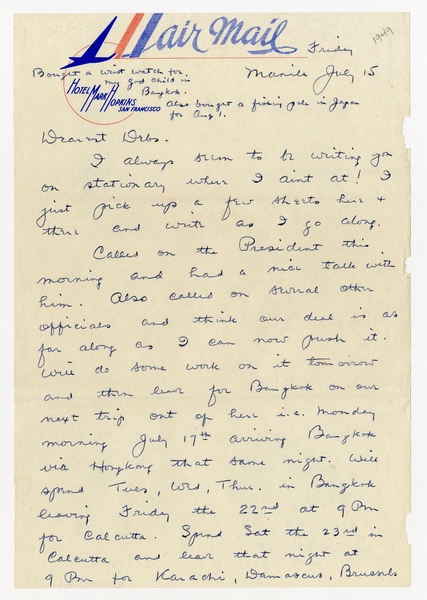 air Mail
1949
Friday
Manila July 15
Bought a wrist watch for
my god child in
Bangkok.
HOTEL MARK HOPKINS
SAN FRANCISCO
Also bought a fishing pole in Japan
for Aug 1.
Dearest Debs.
I always seem to be writing you
on stationary where I aint at! I
just pick up a few sheets here &
there and write as I go along.
Called on the President this
morning and had a nice talk with
him. Also called on several other
officials and think our deal is as
far along as I can now push it.
Will do some work on it tomorrow
and then leave for Bangkok on our
next trip out of here i.e. Monday
morning July 17th arriving Bangkok
via Hongkong that same night. Will
spend Tues, Wed, Thur. in Bangkok
leaving Friday the 22nd at 9 PM
for Calcutta. Spend Sat the 23rd in
Calcutta and leave that night at
9 PM for Karachi, Damascus, Brussels